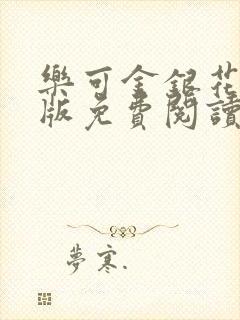 樂可金銀花
版免費閱讀
夢寒.